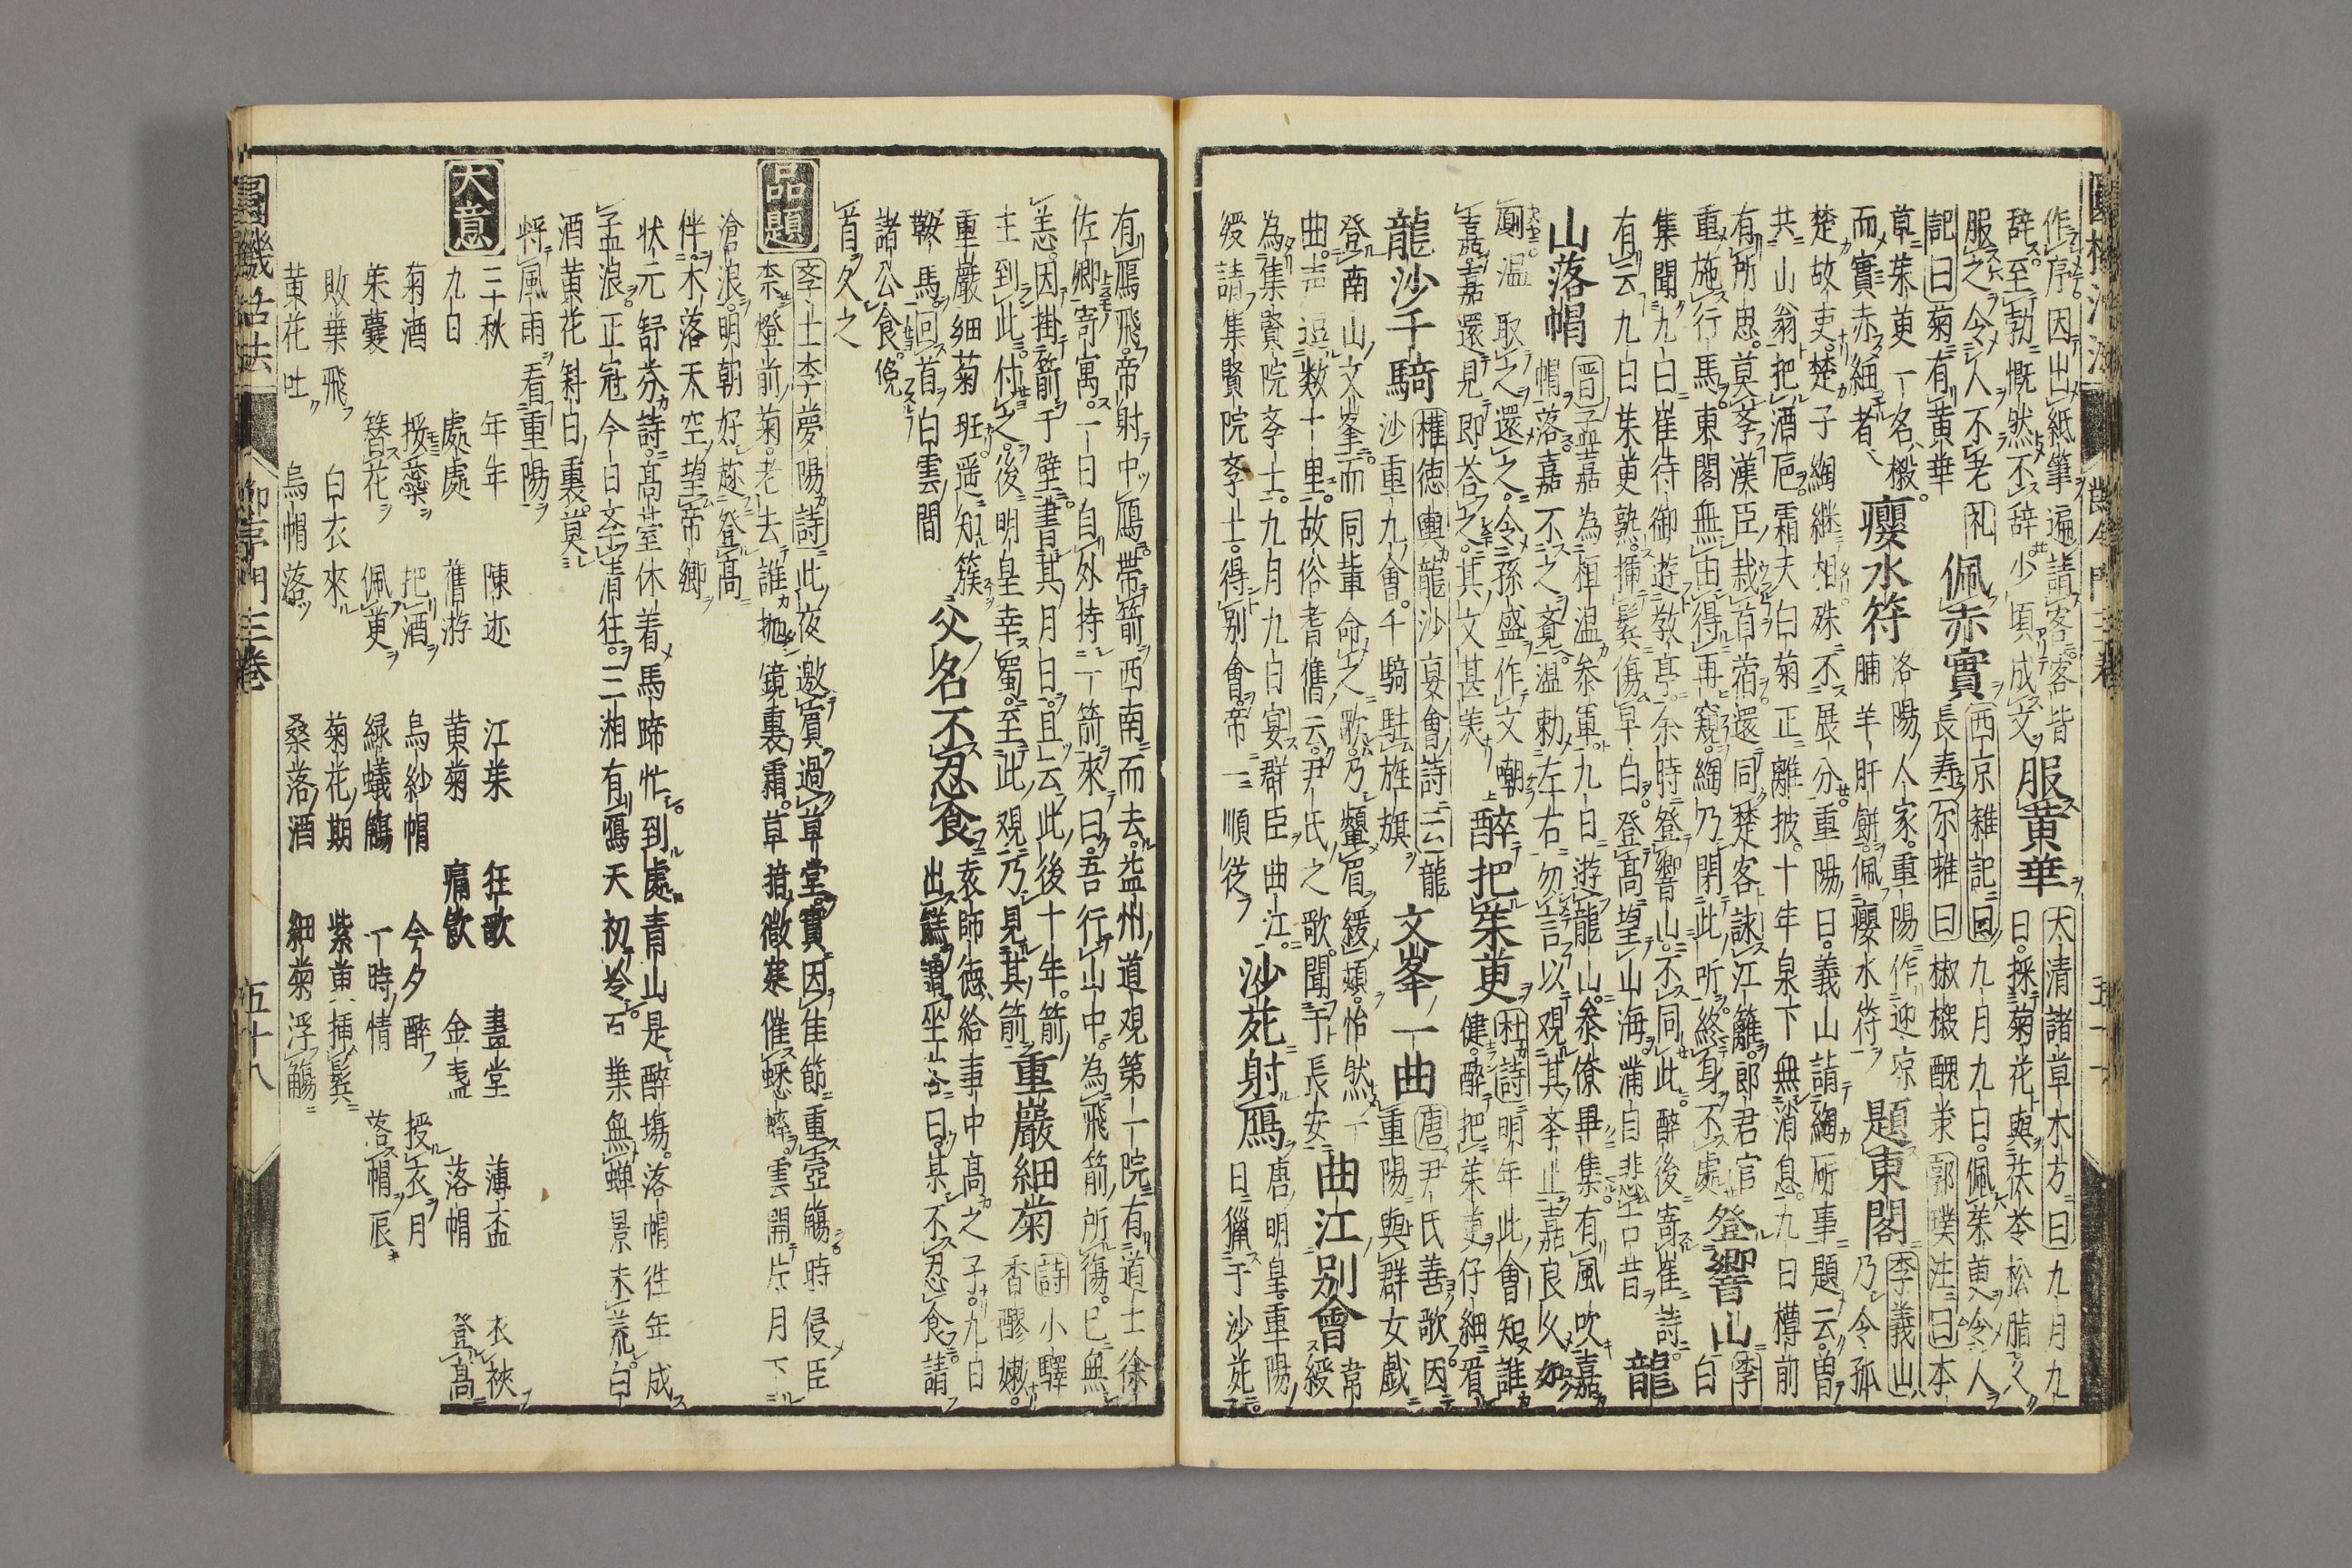 作序因出紙筆遍請客客皆 服黄華 大清諸草木方曰九月九
辞至勃慨然不辞少頃成文 日採菊花與茯苓松脂久
服之令人不老 礼 佩赤實 西京雜記曰九月九日佩茱萸令人
記曰菊有黄華 長寿尓雅曰椒樧醜莍郭璞注曰本
草茱萸一名樧 癭水符 洛陽人家重陽作迎凉 題東閣 李義山
而實赤細者 脯羊肝餅佩癭水符 乃令孤
楚故吏楚子綯継相殊不展分重陽日義山詣綯㕔事題云曽
共山翁把酒巵霜天白菊正離披十年泉下無消息九日樽前
有所思莫斈漢臣栽首蓿還同楚客詠江籬郎君官 登響山 李
重施行馬東閣無由得再窺綯乃閉此㕔終身不處 白
集聞九日崔待御遊敎亭余時登響山不同此醉後寄崔詩 龍
有云九日茱萸熟挿鬂傷早白登髙望山海滿目悲古昔
山落帽 晋孟嘉為桓温叅軍九日游龍山叅僚畢集有風吹嘉
帽落嘉不之覔温勅左右勿言以觀其斈止嘉良乆如
厠温取之還之令孫盛作文嘲 醉把茱萸 杜詩明年此會知誰
嘉嘉還見即荅之其文甚羙 健醉把茱萸仔細看
龍沙千騎 權徳輿龍沙宴會詩云龍 文峯一曲 唐尹氏善歌因
沙重九會千騎駐旌旗 重陽與群女戯
登南山文峯而同輩命之歌乃顰眉緩頰怡然一 曲江別會 常
曲声逗数十里故俗耆舊云尹氏之歌聞于長安 綬
為集賢院斈士九月九日宴群臣曲江 沙苑射鴈 唐明皇重陽
綬請集賢院斈士得別會帝一順従 日獵于沙苑
有鴈飛帝射中鴈帯箭西南而去益州道观第一院有道士徐
佐卿寄寓一日自外持一箭來曰吾行山中為飛箭所傷已無
恙因掛箭于壁書其月日且云此後十年箭
主到此付之後明皇幸蜀至此观乃見其箭 重巖細菊 詩小驛
重巖細菊班遥知簇 父名不忍食 袁師徳給事中髙之子九日
鞍馬回首白雲間 出餻謂坐客曰某不忍食請
諸公食俛
首久之
品題 斈士李夢陽詩此夜邀賓過草堂實因佳節重壺觴時侵臣
柰燈前菊老去誰抛鏡裏霜草措微寒催蟋蟀雲開片月下
滄浪明朝好趂登髙
伴木落天空望帝卿
状元舒芬詩髙莹休着馬蹄忙到處青山是醉塲落帽徃年成
孟浪正冠今日斈清狂三湘有鴈天初冷百業無蝉景未荒白
酒黄花斜日裏莫
将風雨看重陽
大意 三十秋 年年 陳迹 江茱 狂歌 畫堂 薄盃 衣裌
九日 處處 舊游 黄菊 痛飲 金盞 落帽 登髙
菊酒 把酒 烏紗帽 今夕醉 授衣月
茱囊 簪花 佩萸 緑蟻觴 一時情 落帽辰
敗葉飛 白衣來 菊花期 紫萸挿鬂
黄花吐 烏帽落 桑落酒 細菊浮觴
圓機活法 節序門三巻 五十八